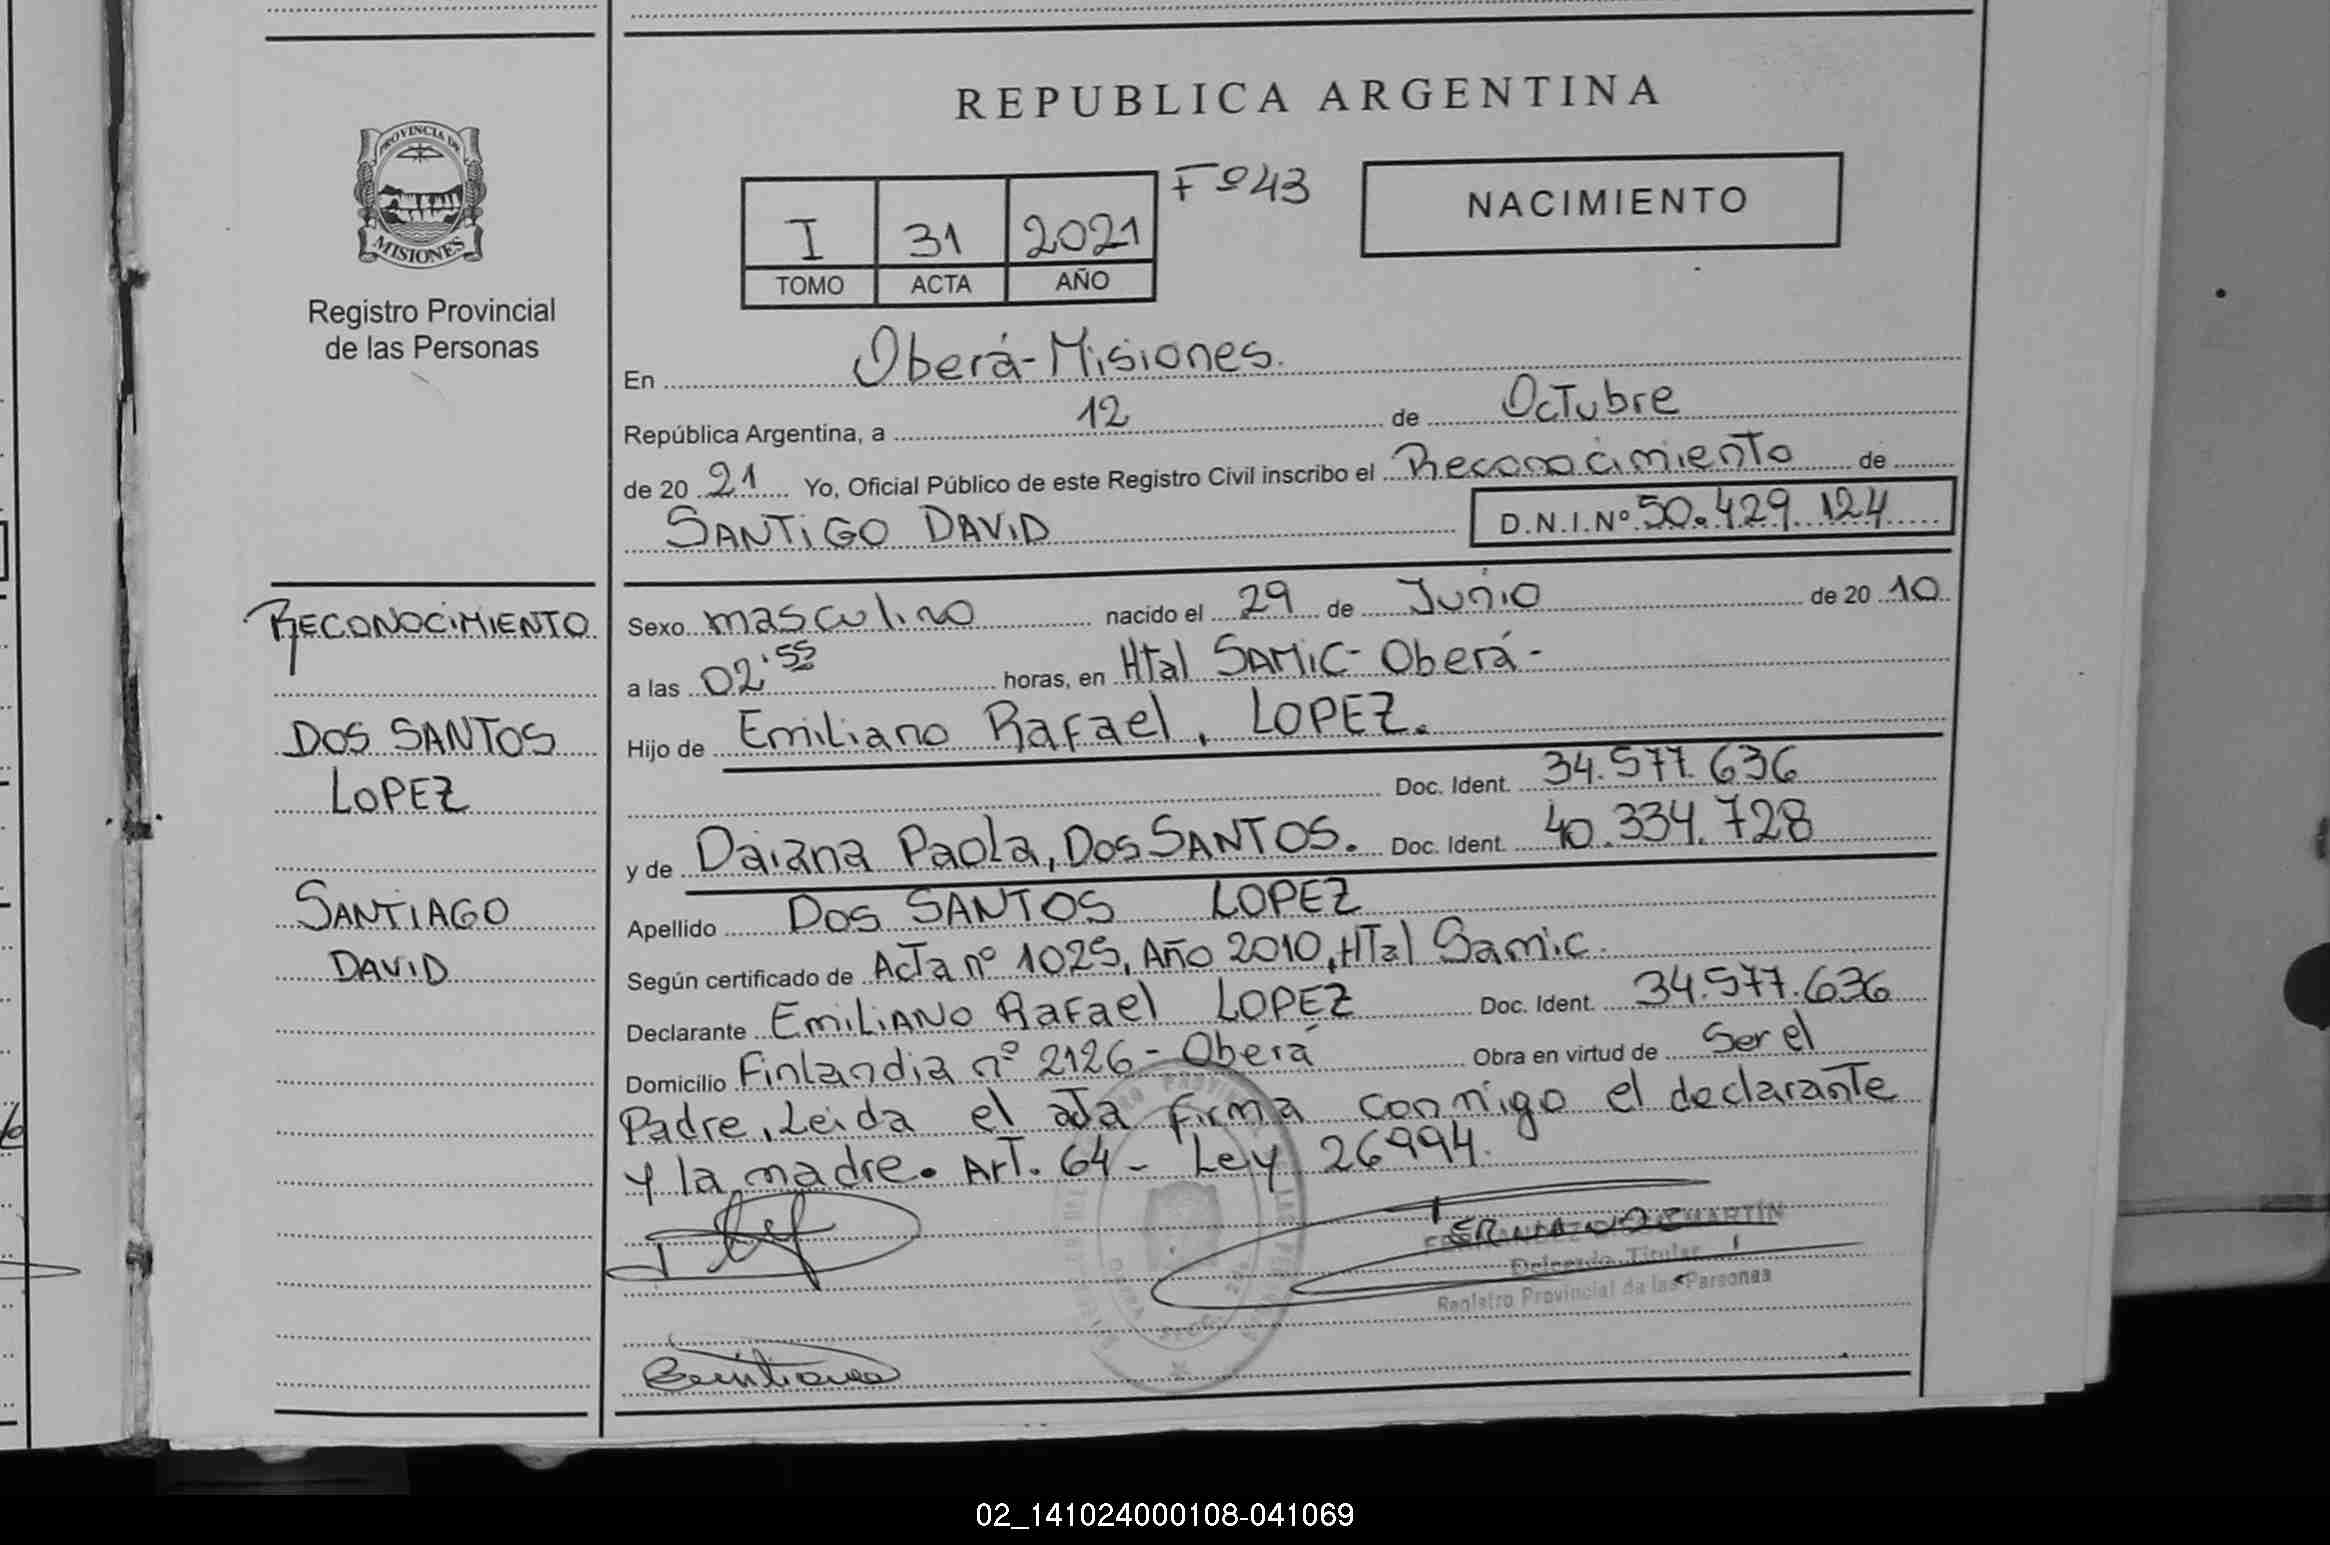 REPUBLICA ARGENTINA
PROVINCIA DE
MISIONES
Registro Provincial
de las Personas
Fº43
NACIMIENTO
I 31 2021
TOMO ACTA AÑO
En Oberá-Misiones.
República Argentina, a 12 de Octubre
de 20 21 Yo, Oficial Público de este Registro Civil inscribo el Reconocimiento de
SANTIGO DAVID D.N.I.Nº 50.429.124
RECONOCIMIENTO
DOS SANTOS
LOPEZ
SANTIAGO
DAVID
Sexo masculino nacido el 29 de Junio de 20 10
a las 02'55 horas, en Htal SAMIC- Oberá-
Hijo de Emiliano Rafael, LOPEZ.
Doc. Ident. 34.577.636
y de Daiana Paola, DOS SANTOS. Doc. Ident. 40.334.728
Apellido DOS SANTOS LOPEZ
Según certificado de Acta nº 1025, Año 2010, HTal Samic.
Declarante EMILIANO Rafael LOPEZ Doc. Ident. 34.577.636
Domicilio Finlandia nº 2126- Oberá Obra en virtud de Ser el
Padre, Leida el acta firma conmigo el declarante
y la madre. Art. 64- Ley 26994.
MARTÍN
Delegado Titular
Registro Provincial de las Personas
02_141024000108-041069